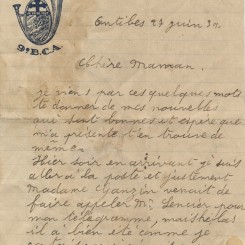 9e B.C.A.
Antibes 27 juin 31.
Chère Maman.
je viens par ces quelques mots
te donner de mes nouvelles
qui sont bonnes et espère que
m'a présente t'en trouve de
même.
Hier soir en arrivant je suis
aller à la poste et justement
Madame Ganzin venait de
faire appeler Mr Lencier pour
mon télégramme, mais hélas
il a bien été comme je